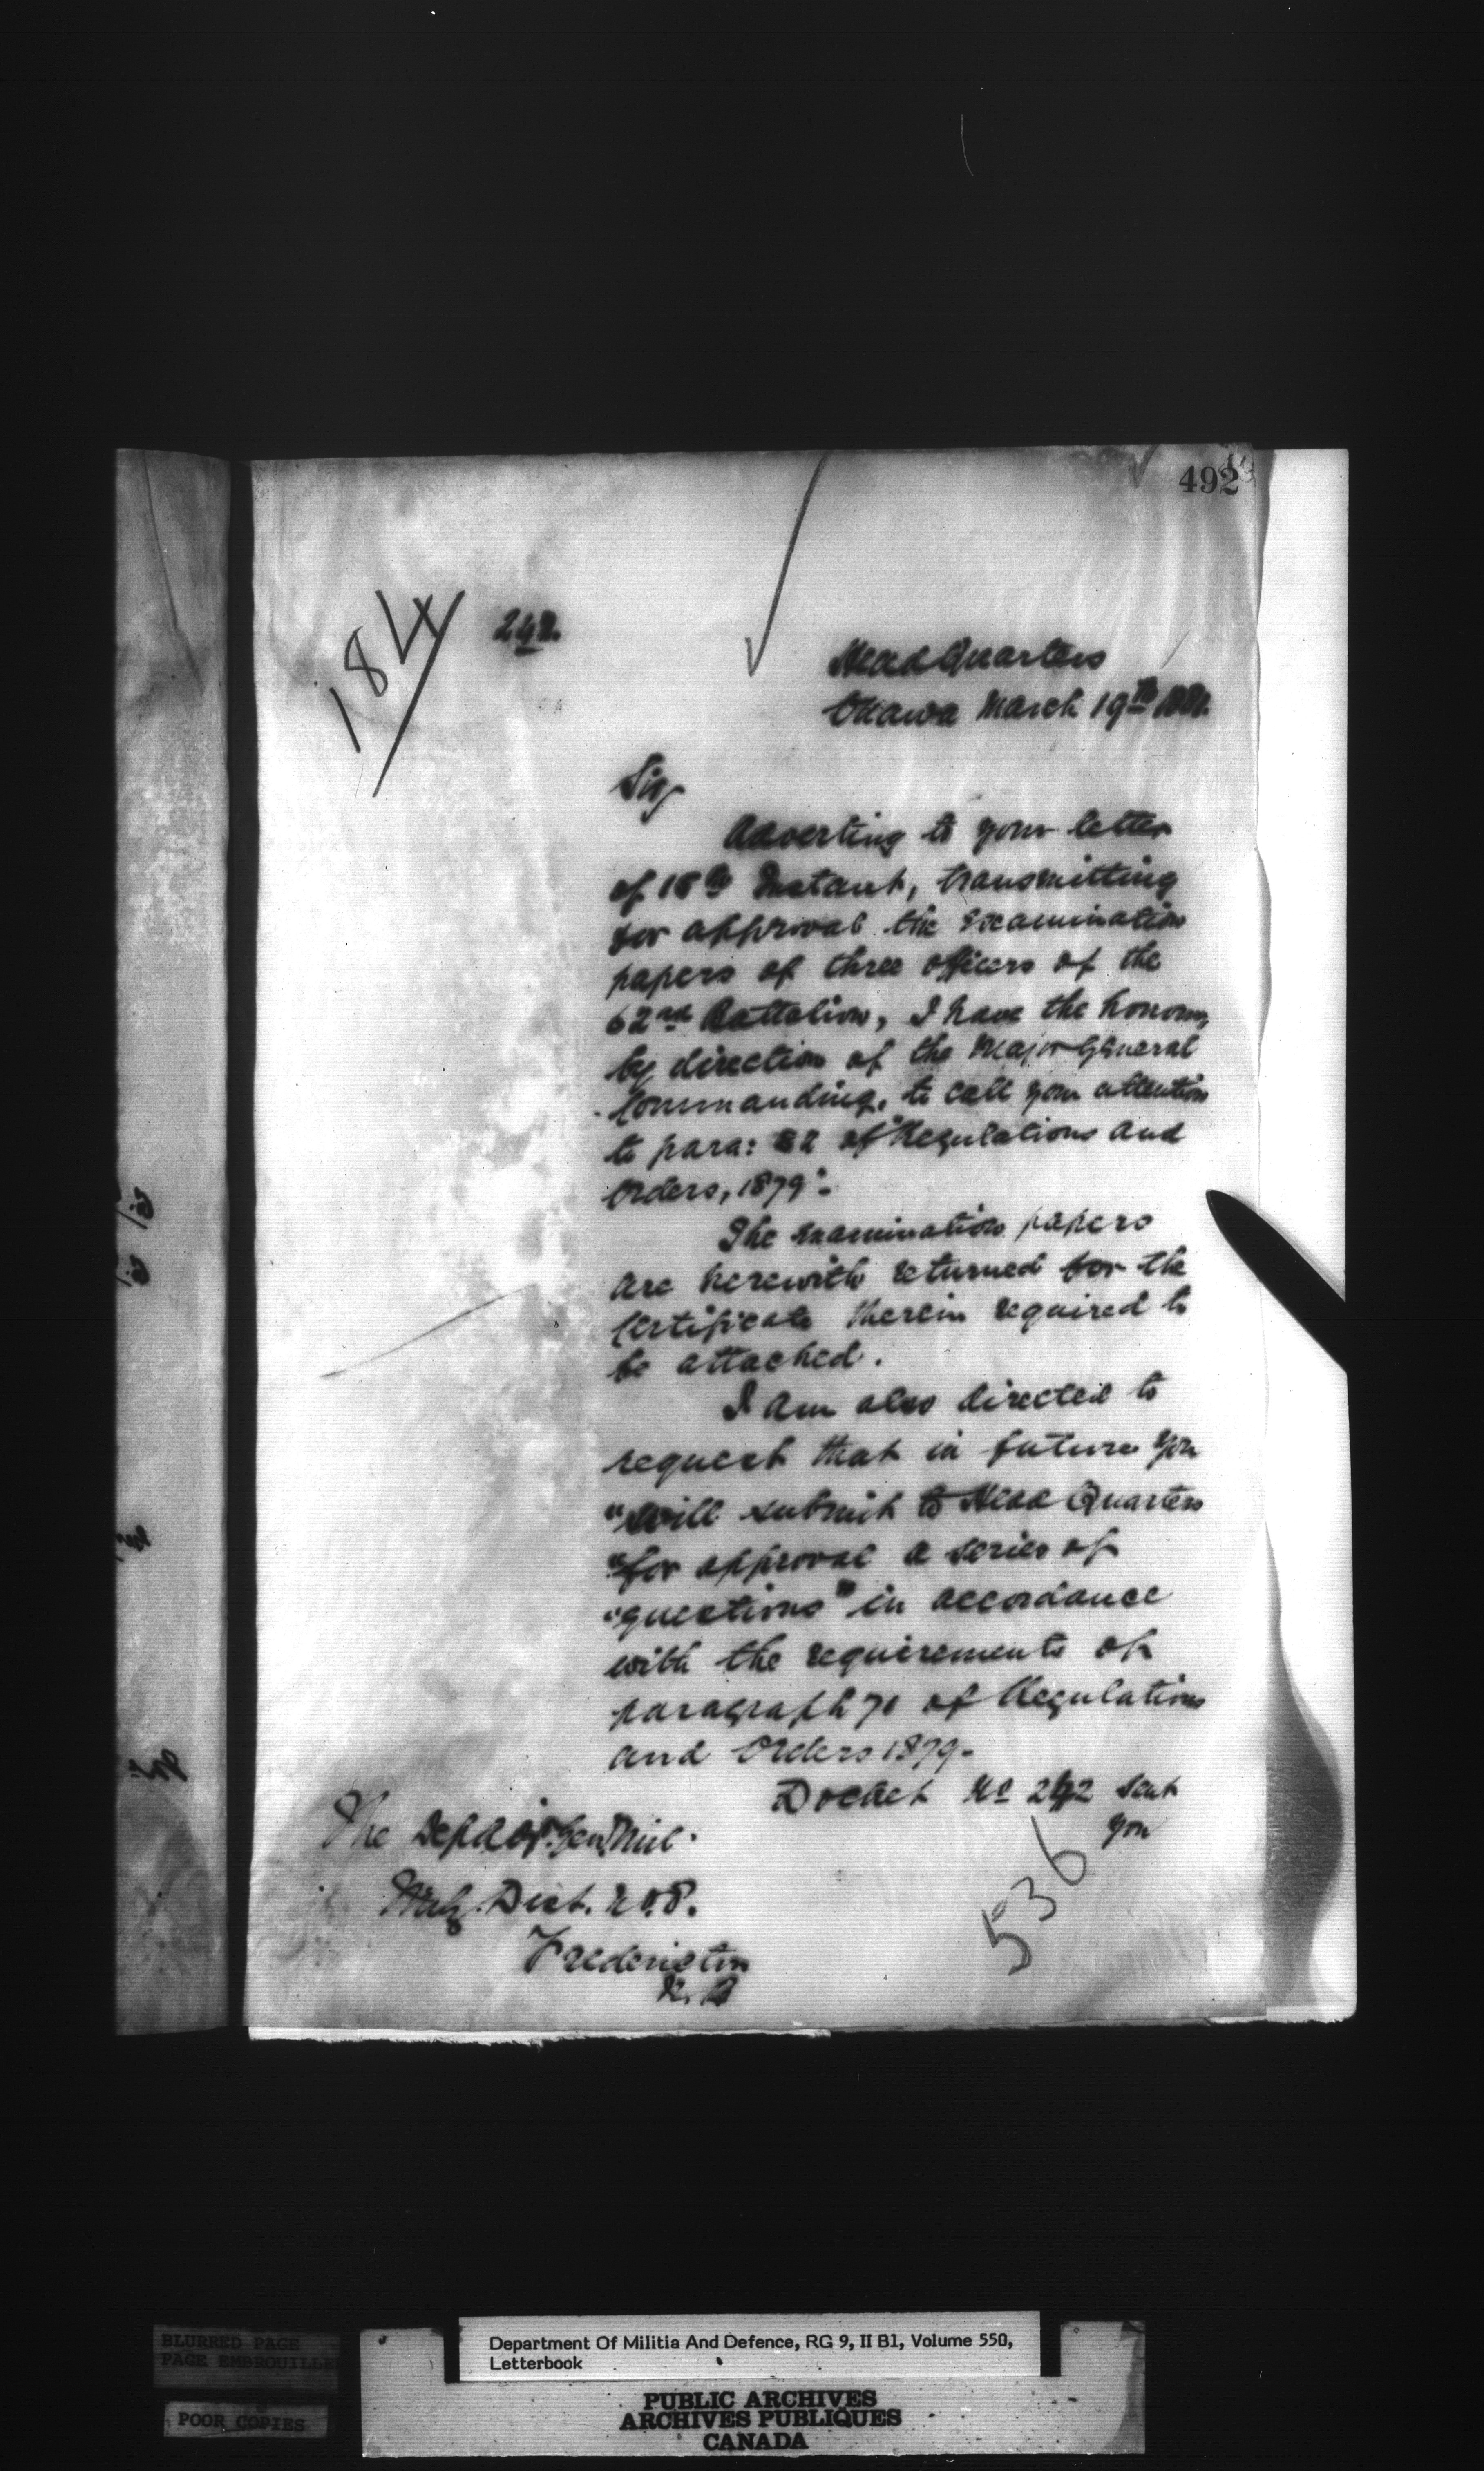 492
184
242.
Head Quarters
Ottawa March 19th 1881.
Sir,
Adverting to your letter
of 18th Instant, transmitting
for approval the examination
papers of three officers of the
62nd Battalion, I have the honour,
by direction of the Major General
Commanding, to call your attention
to para: 82 of "Regulations and
Orders, 1879".
The examination papers
are herewith returned for the
Certificate therein required to
be attached.
I am also directed to
request that in future you
"will submit to Head Quarters
"for approval a series of
"questions" in accordance
with the requirements of
paragraph 71 of Regulations
and Orders 1879-
Docket No 242 sent
you
The Dep Adjt. Genl Mil.
Mily. Dist. No. 8.
Fredericton
N. B
536
BLURRED PAGE
PAGE EMBROUILLE
POOR COPIES
Department Of Militia And Defence, RG 9, II B1, Volume 550,
Letterbook
PUBLIC ARCHIVES
ARCHIVES PUBLIQUES
CANADA